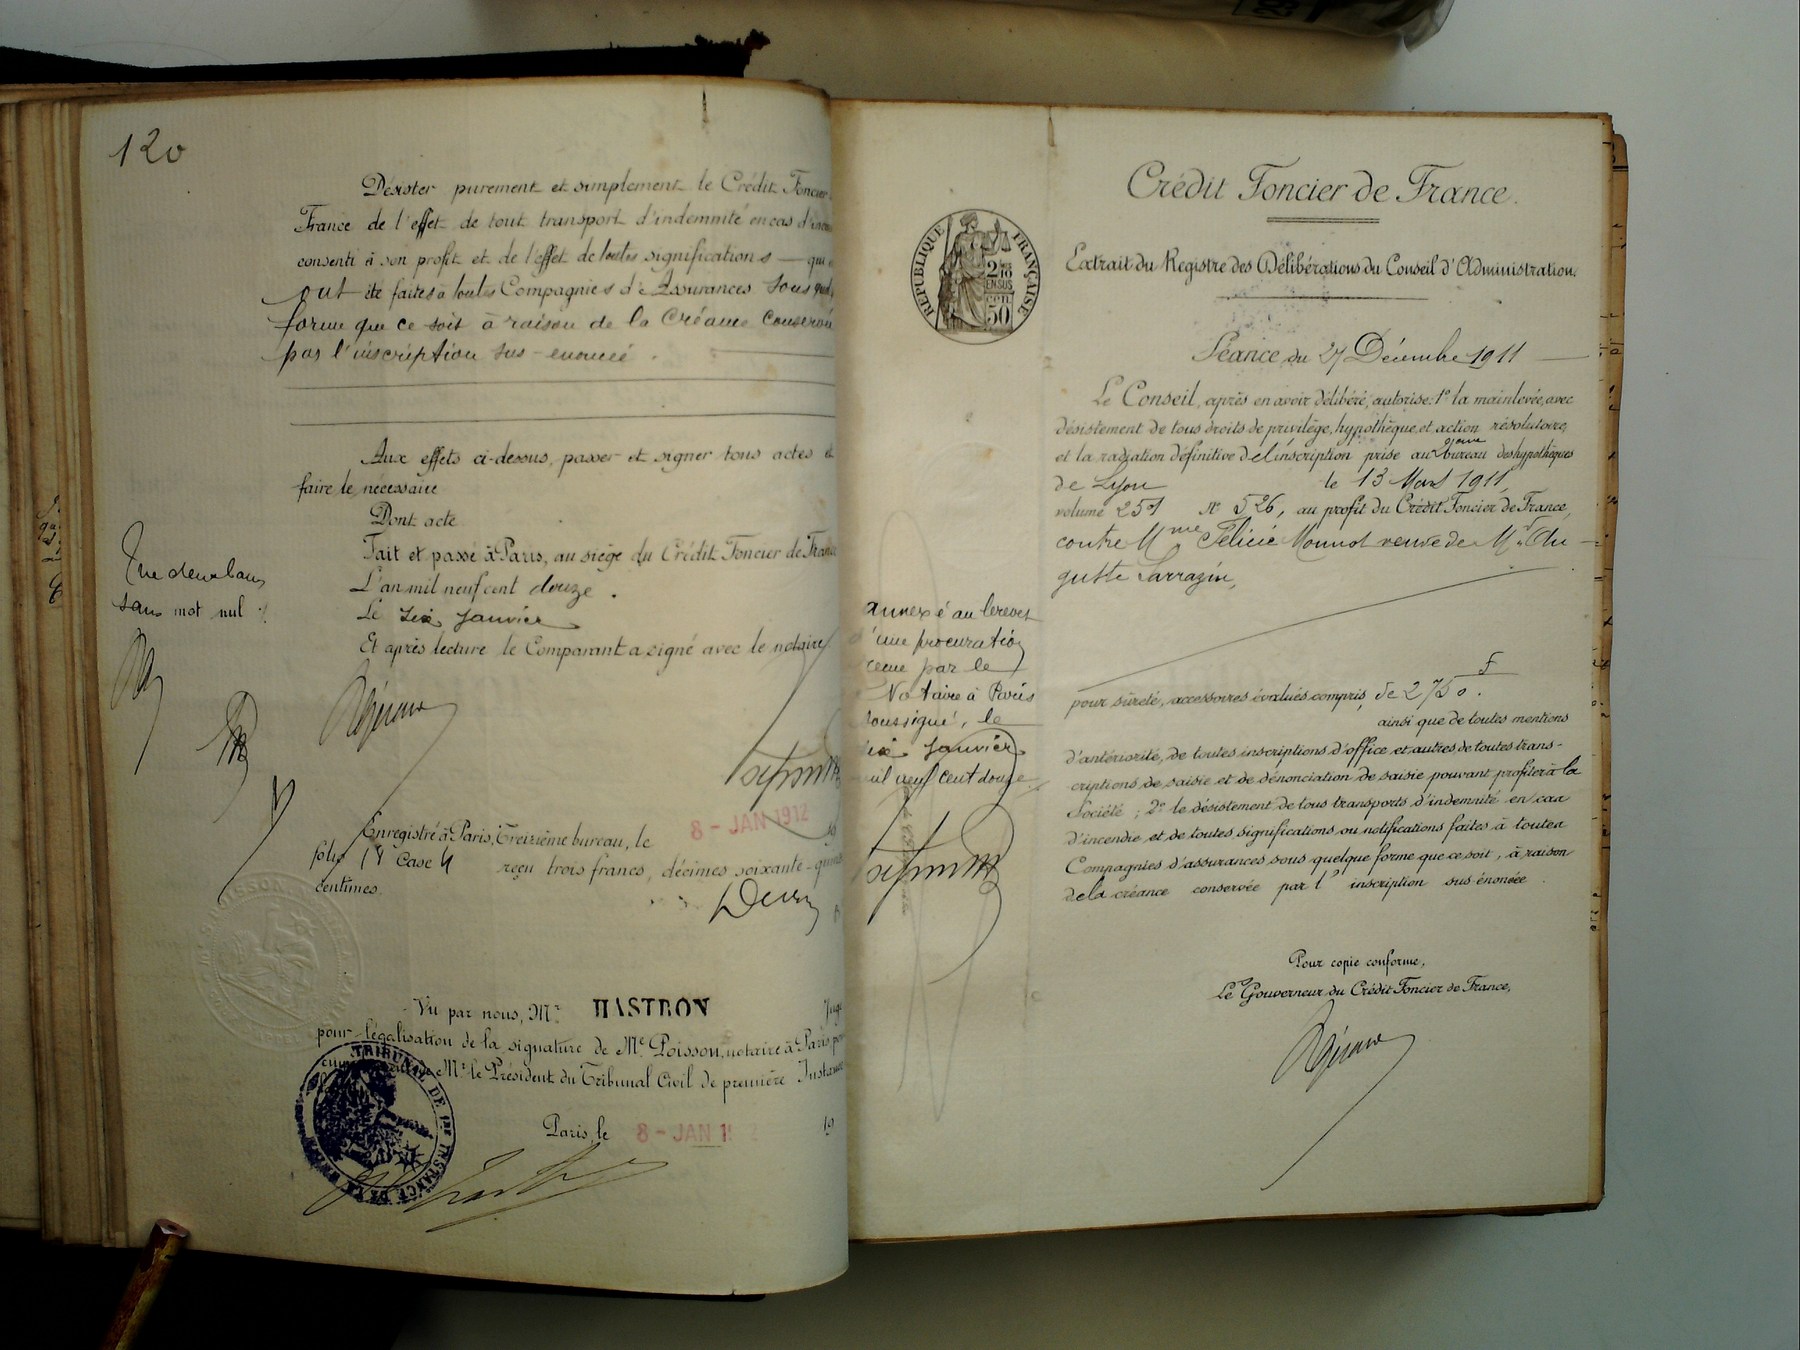 120
Désister purement et simplement le Crédit Foncier
France de l'effet de tout transport d'indemnité en cas d'
consenti à son profit et de l'effet de toutes significations — qui
ont été faites à toutes Compagnies d'Assurances sous
forme que ce soit à raison de la Créance Conservée
par l'inscription sus-énoncée.
Aux effets ci-dessus, passer et signer tous actes et
faire le nécessaire
Dont acte
Fait et passé à Paris, au siège du Crédit Foncier de France
L'an mil neuf cent douze.
Le six Janvier
Et après lecture le Comparant a signé avec le notaire
sans mot nul
Enregistré à Paris, Treizième bureau, le 8 - JAN 1912 19
folio 18 Case 4 reçu trois francs, décimes soixante-
centimes
Vu par nous, Mr HASTRON Juge
pour légalisation de la signature de Me Poisson, notaire à Paris,
Mr le Président du Tribunal Civil de première Instance
Paris, le 8 - JAN 19
TRIBUNAL DE 1RE INSTANCE DE LA SEINE
RÉPUBLIQUE FRANÇAISE
2/10
EN SUS
50
annexé au brevet
d'une procuration
reçue par le
Notaire à Paris
soussigné, le
six Janvier
mil neuf cent douze
Crédit Foncier de France.
Extrait du Registre des Délibérations du Conseil d'Administration.
Séance du 27 Décembre 1911
Le Conseil, après en avoir délibéré, autorise: 1º la mainlevée, avec
désistement de tous droits de privilège, hypothèque et action résolutoire,
et la radiation définitive de l'inscription prise au 2ème bureau des hypothèques
de Lyon le 13 Mars 1911,
volume 251 Nº 526, au profit du Crédit Foncier de France,
contre Mme Félicie Monnot veuve de Mr Au-
guste Sarrazin,
pour sûreté, accessoires évalués compris, de 2750 f.
ainsi que de toutes mentions
d'antériorité, de toutes inscriptions d'office et autres de toutes trans-
criptions de saisie et de dénonciation de saisie pouvant profiter à la
Société; 2º le désistement de tous transports d'indemnité en cas
d'incendie et de toutes significations ou notifications faites à toutes
Compagnies d'assurances sous quelque forme que ce soit, à raison
de la créance conservée par l' inscription sus-énoncée.
Pour copie conforme,
Le Gouverneur du Crédit Foncier de France,